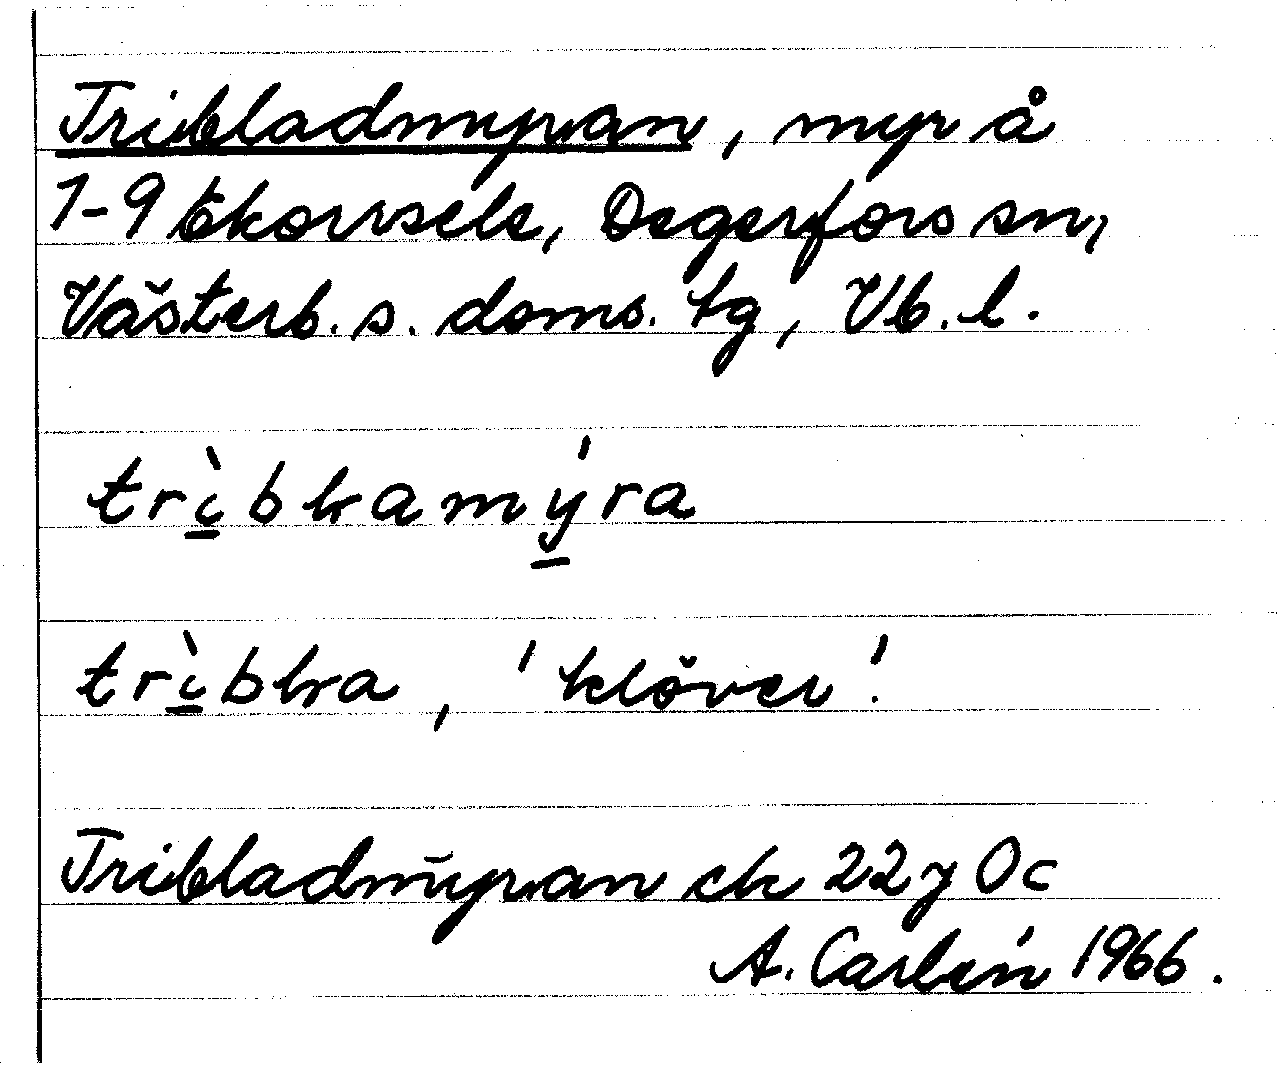 Tribladmyran, myr å
1-9 Ekorrsele, Degerfors sn,
Västerb. s. doms. tg, Vb. l.
trìbkamýra
trìbka, 'klöver'.
Tribladmyran ek 22 y 0c
A. Carlén 1966.